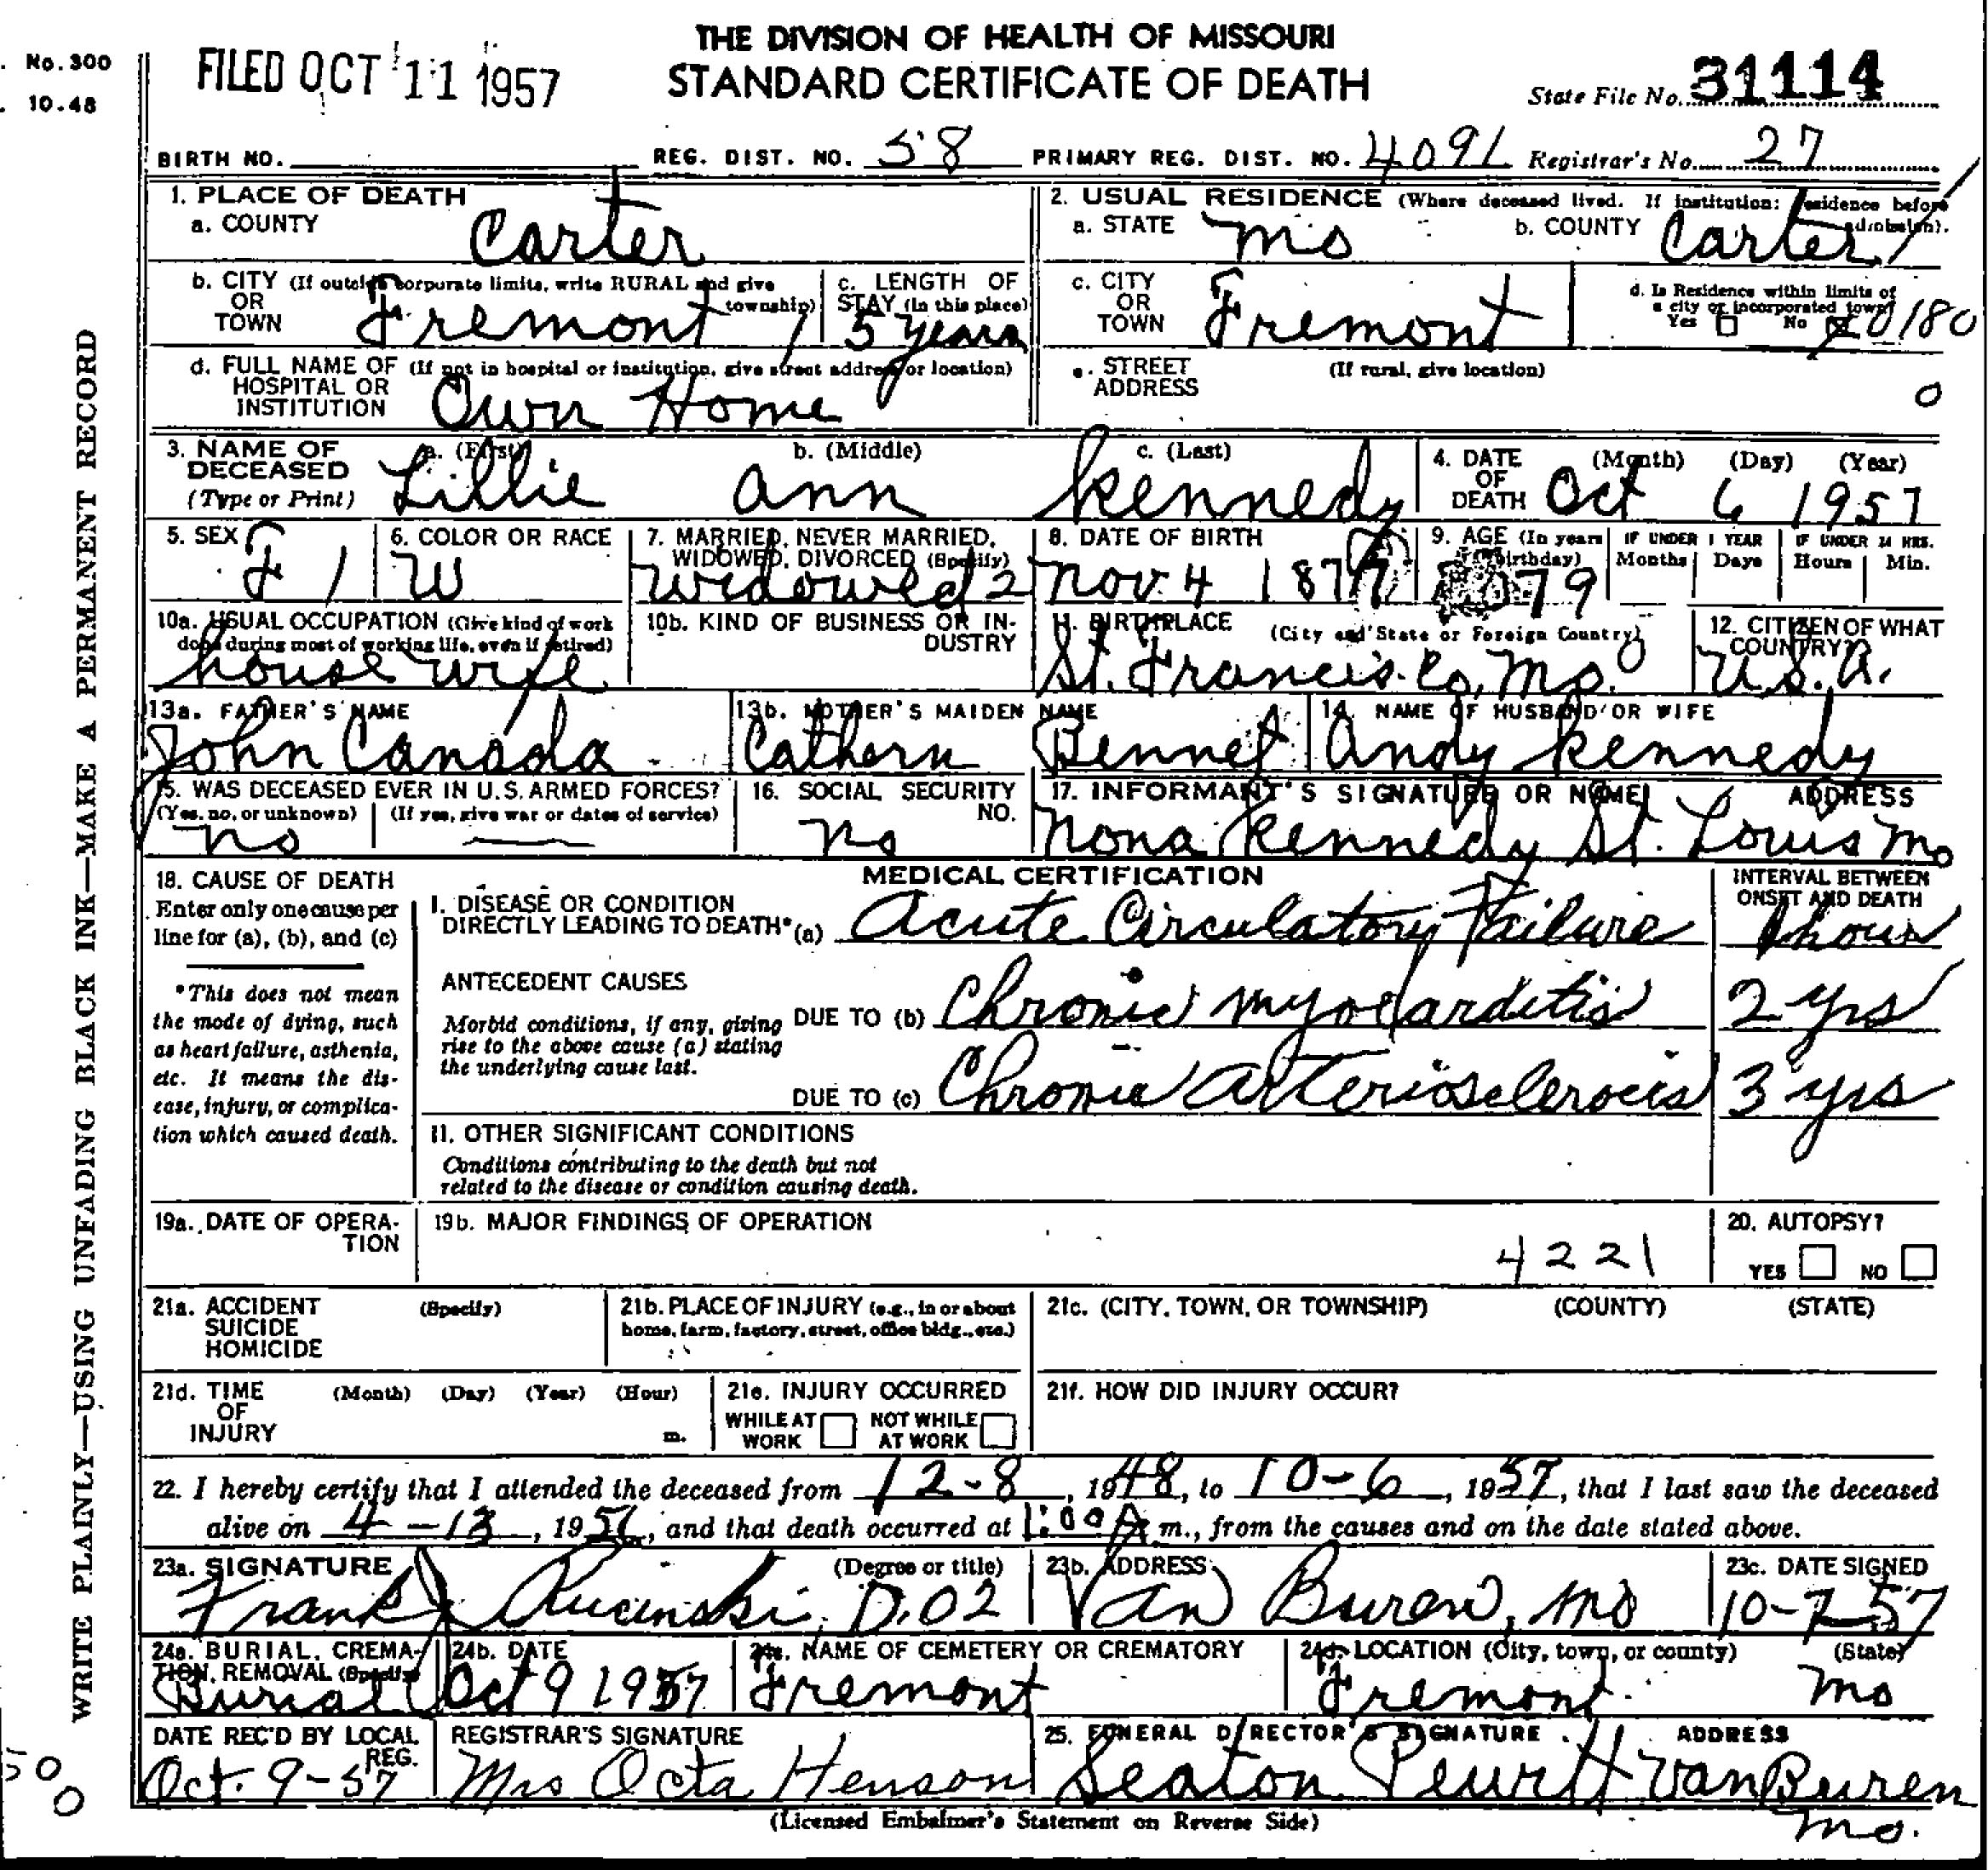 THE DIVISION OF HEALTH OF MISSOURI
STANDARD CERTIFICATE OF DEATH
No. 300
10.48
FILED OCT 11 1957
State File No. 31114
BIRTH NO. REG. DIST. NO. 58 PRIMARY REG. DIST. NO. 4091 Registrar's No. 27
WRITE PLAINLY—USING UNFADING BLACK INK—MAKE A PERMANENT RECORD
1. PLACE OF DEATH
a. COUNTY Carter
2. USUAL RESIDENCE (Where deceased lived. If institution: residence before admission).
a. STATE Mo b. COUNTY Carter
b. CITY (If outside corporate limits, write RURAL and give township) OR TOWN Fremont
c. LENGTH OF STAY (In this place) 5 years
c. CITY OR TOWN Fremont
d. Is Residence within limits of a city or incorporated town? Yes No 0180
d. FULL NAME OF (If not in hospital or institution, give street address or location) HOSPITAL OR INSTITUTION Own Home
e. STREET ADDRESS (If rural, give location) 0
3. NAME OF DECEASED (Type or Print) a. (First) Lillie b. (Middle) Ann c. (Last) Kennedy
4. DATE OF DEATH (Month) (Day) (Year) Oct 6 1957
5. SEX F 1
6. COLOR OR RACE W
7. MARRIED, NEVER MARRIED, WIDOWED, DIVORCED (Specify) Widowed 2
8. DATE OF BIRTH Nov. 4 1877
9. AGE (In years last birthday) 79 IF UNDER 1 YEAR Months Days IF UNDER 24 HRS. Hours Min.
10a. USUAL OCCUPATION (Give kind of work done during most of working life, even if retired) house wife
10b. KIND OF BUSINESS OR INDUSTRY
11. BIRTHPLACE (City and State or Foreign Country) St. Francis. Co, Mo.
12. CITIZEN OF WHAT COUNTRY? U.S.A.
13a. FATHER'S NAME John Canada
13b. MOTHER'S MAIDEN NAME Cathern Bennet
14. NAME OF HUSBAND OR WIFE Andy Kennedy
15. WAS DECEASED EVER IN U.S. ARMED FORCES? (Yes, no, or unknown) (If yes, give war or dates of service) no —
16. SOCIAL SECURITY NO. no
17. INFORMANT'S SIGNATURE OR NAME ADDRESS Nona Kennedy St. Louis Mo
18. CAUSE OF DEATH
Enter only one cause per line for (a), (b), and (c)
*This does not mean the mode of dying, such as heart failure, asthenia, etc. It means the disease, injury, or complication which caused death.
MEDICAL CERTIFICATION
INTERVAL BETWEEN ONSET AND DEATH
I. DISEASE OR CONDITION DIRECTLY LEADING TO DEATH* (a) Acute Circulatory Failure 1 hour
ANTECEDENT CAUSES
Morbid conditions, if any, giving rise to the above cause (a) stating the underlying cause last.
DUE TO (b) Chronic myocarditis 2 yrs
DUE TO (c) Chronic Arteriosclerocis 3 yrs
II. OTHER SIGNIFICANT CONDITIONS
Conditions contributing to the death but not related to the disease or condition causing death.
19a. DATE OF OPERATION
19b. MAJOR FINDINGS OF OPERATION
4221
20. AUTOPSY? YES NO
21a. ACCIDENT SUICIDE HOMICIDE (Specify)
21b. PLACE OF INJURY (e.g., in or about home, farm, factory, street, office bldg., etc.)
21c. (CITY, TOWN, OR TOWNSHIP) (COUNTY) (STATE)
21d. TIME OF INJURY (Month) (Day) (Year) (Hour) m.
21e. INJURY OCCURRED WHILE AT WORK NOT WHILE AT WORK
21f. HOW DID INJURY OCCUR?
22. I hereby certify that I attended the deceased from 12-8, 1948, to 10-6, 1957, that I last saw the deceased
alive on 4-13, 1956, and that death occurred at 1:00 A m., from the causes and on the date stated above.
23a. SIGNATURE (Degree or title) Frank J Rucinski, D.O 2
23b. ADDRESS Van Buren, Mo
23c. DATE SIGNED 10-7-57
24a. BURIAL, CREMATION, REMOVAL (Specify) Burial
24b. DATE Oct 9 1957
24c. NAME OF CEMETERY OR CREMATORY Fremont
24d. LOCATION (City, town, or county) (State) Fremont Mo
DATE REC'D BY LOCAL REG. Oct. 9-57
REGISTRAR'S SIGNATURE Mrs Octa Henson
25. FUNERAL DIRECTOR'S SIGNATURE ADDRESS Seaton Pewitt Van Buren Mo.
(Licensed Embalmer's Statement on Reverse Side)